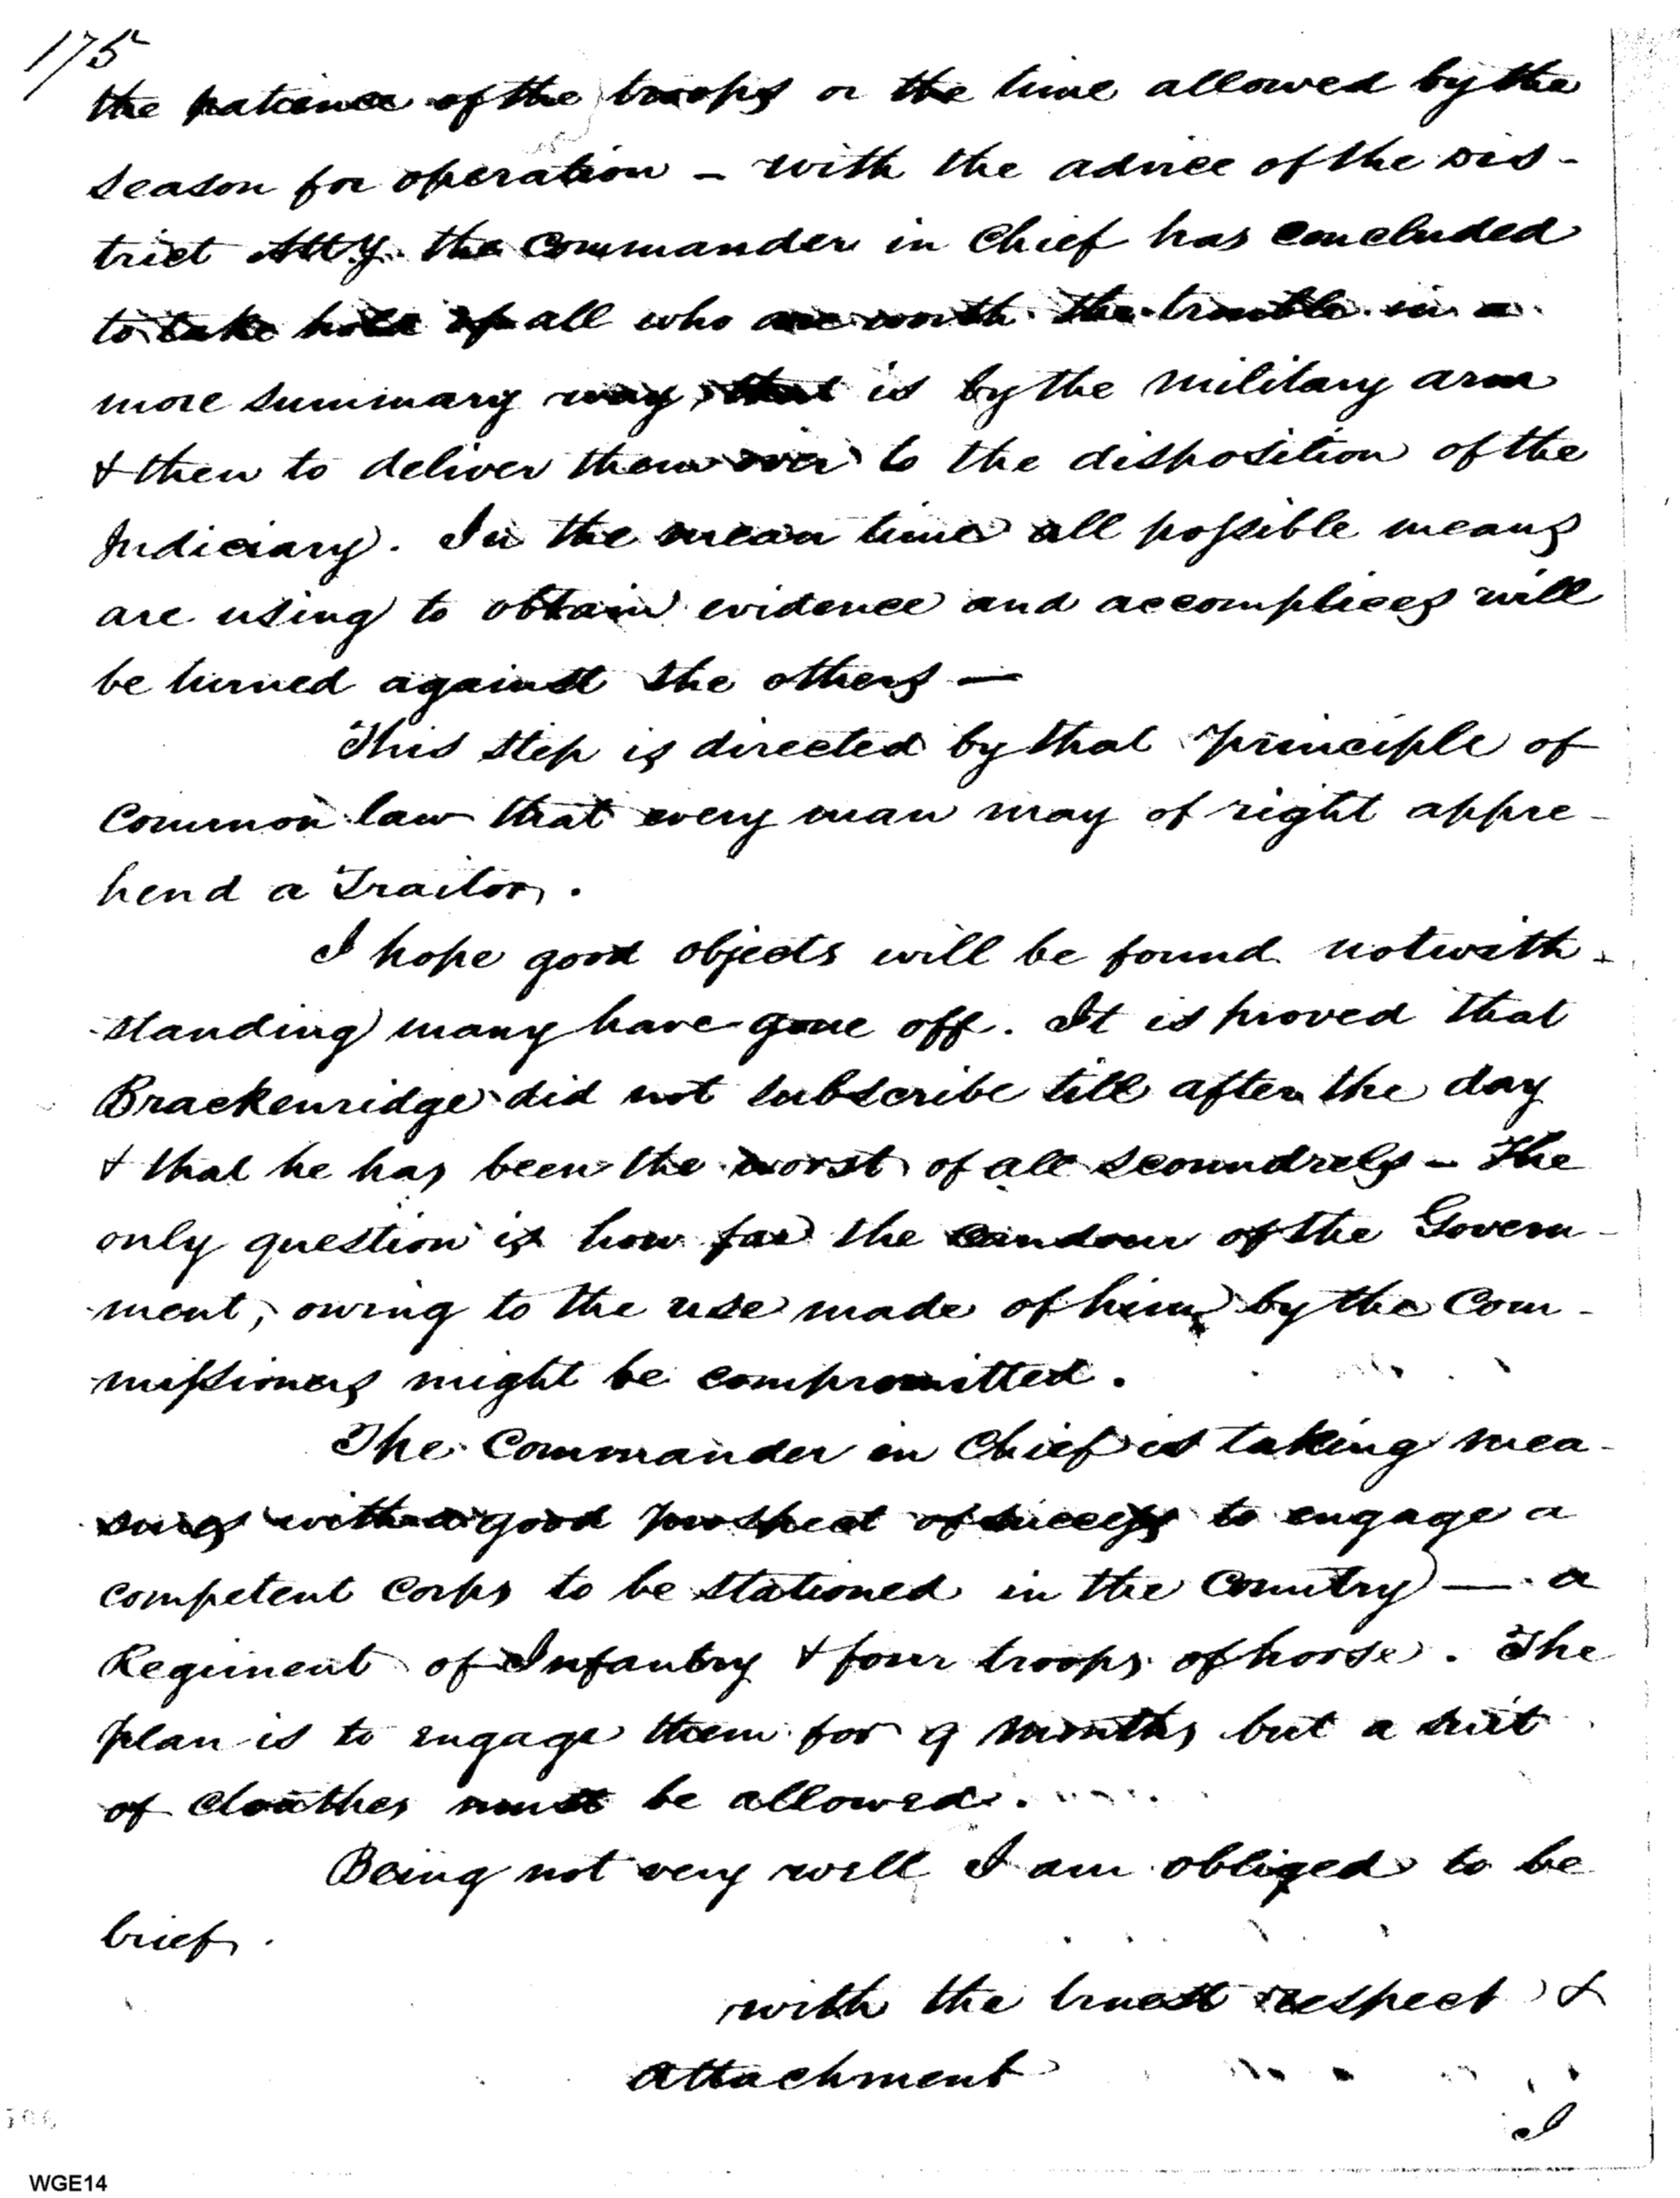 175
the patience of the troops or the time allowed by the
season for operation – with the advice of the Dis-
trict Atty. the Commander in Chief has concluded
to take hold of all who are worth the trouble in a
more summary way, that is by the military arm
& then to deliver them over to the disposition of the
Judiciary. In the mean time all possible means
are using to obtain evidence and accomplices will
be turned against the others —
This step is directed by that principle of
Common law that every man may of right appre-
hend a Traitor.
I hope good objects will be found notwith-
standing many have gone off. It is proved that
Brackenridge did not subscribe till after the day
& that he has been the worst of all scoundrels – The
only question is how far the candour of the Govern-
ment, owing to the use made of him by the Com-
missioners might be compromitted.
The Commander in Chief is taking mea-
sures with a good prospect of success to engage a
competent Corps to be stationed in the Country — a
Regiment of Infantry & four troops of horse. The
plan is to engage them for 9 months but a suit
of cloathes must be allowed.
Being not very well I am obliged to be
brief.
with the truest respect &
attachment
I
506
WGE14